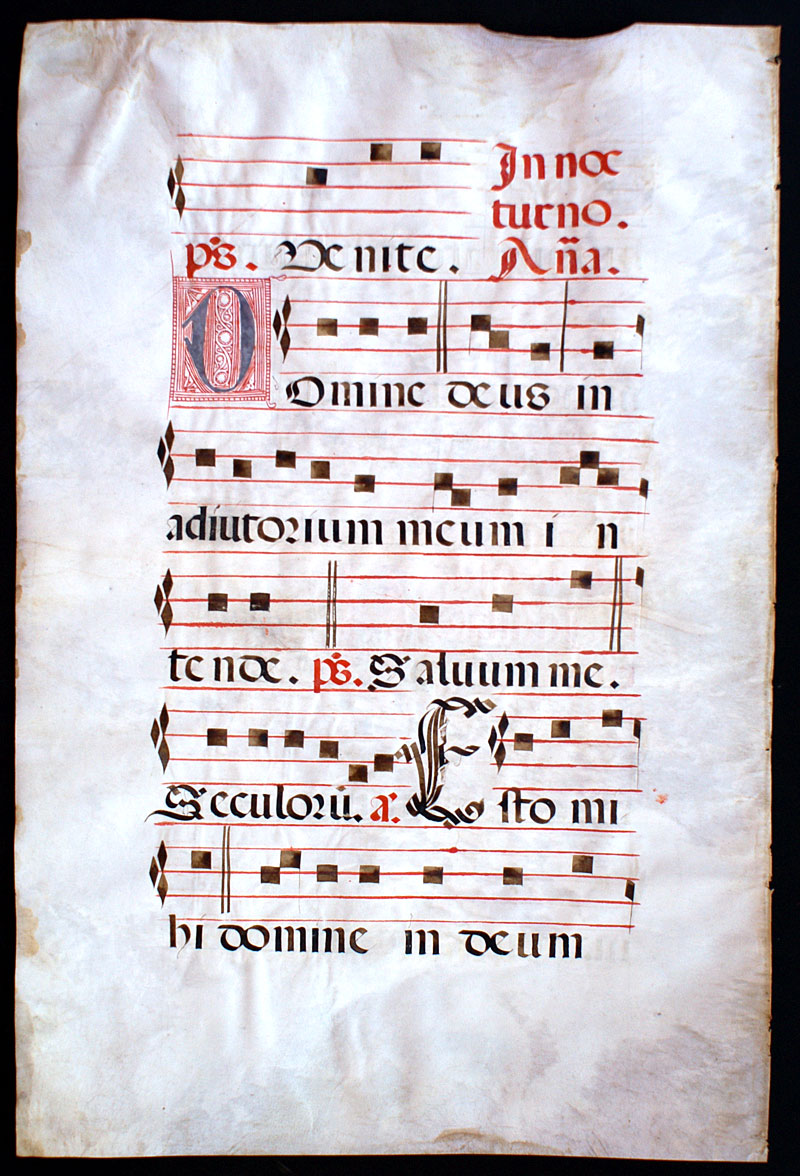 In noc
turno.
ps. Venite. Aña.
DOmine deus in
adiutorium meum in
tende. ps. Saluum me.
Seculorū. a. Esto mi
hi domine in deum